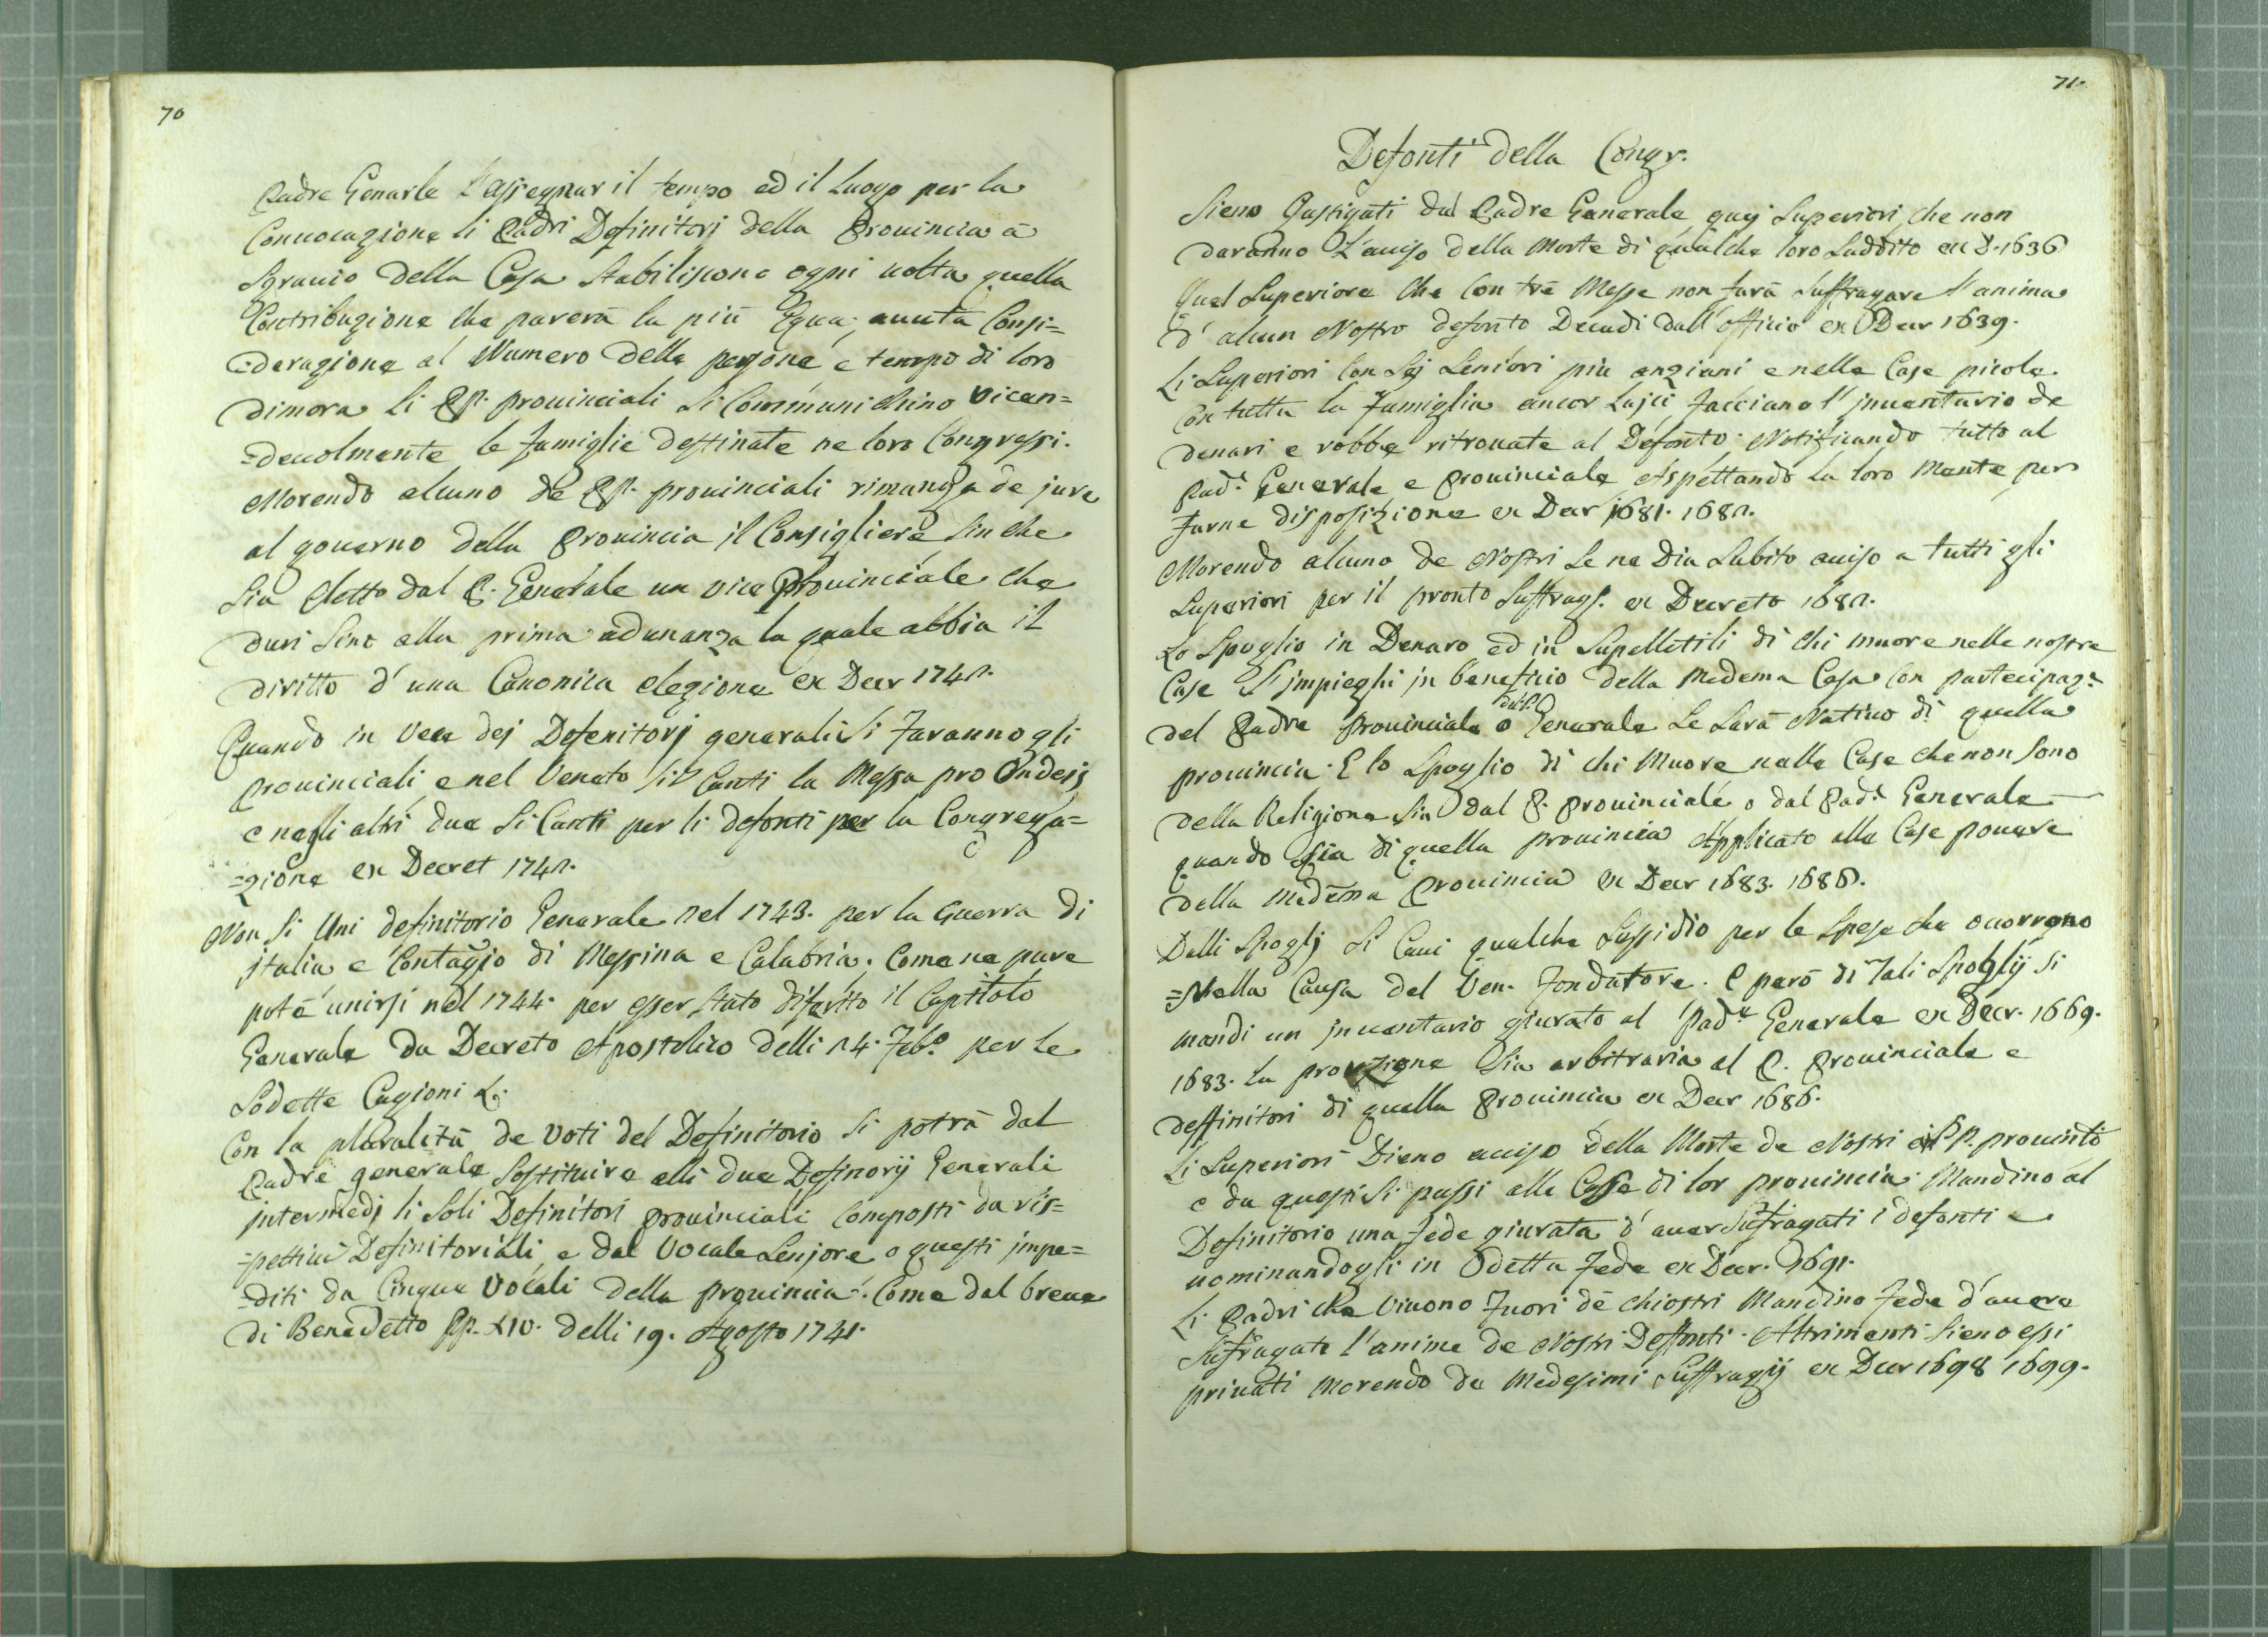 70
Padre Genarle l'assegnar il tempo ed il Luogo per la
Conuocazione li Padri Definitorj della Prouincia à
Sgrauio della Casa Stabiliscono ogni uolta quella
Contribuzione che parerà la più Equa, auuta Consi=
=derazione al Numero delle persone e tempo di loro
dimora. Li PP. prouinciali si Communichino vicen=
=deuolmente le famiglie destinate ne loro Congressi.
Morendo alcuno de PP. prouinciali rimanga de jure
al gouerno della Prouincia il Consigliere Sin che
Sia eletto dal P. Generale un vice Prouinciale che
duri Sino alla prima adunanza la quale abbia il
diritto d'una Canonica elezione ex Decr 1742.
Quando in vece dej Defenitorj generali Si faranno gli
Prouinciali, e nel Veneto Si Canti la Messa pro
e negli altri due Si Canti per li defonti per la Congrega=
=zione ex Decret 1742.
Non Si Unì definitorio Generale nel 1743. per la Guerra di
jtalia e Contagio di Messina e Calabria. Come ne pure
potè unirsi nel 1744. per esser stato diferito il Capitolo
Generale da Decreto Apostolico delli 24. Feb.o per le
Sodette Cagioni &.
Con la pluralità de Voti del Definitorio Si potrà dal
Padre generale Sostituire alli due Definorij Generali
jntermedj li Soli Definitori prouinciali Composti da ris=
=pettiui Definitoriali, e dal Vocale Senjore o questi jmpe=
=diti da Cinque Vocali della prouincia. Come dal breue
di Benedetto PP. XIV. delli 19. Agosto 1741.
71.
Defonti della Congr.
Sieno Gastigati dal Padre Generale quej Superiori che non
daranno L'auiso della Morte di qualche loro Suddito ex D. 1636
Quel Superiore che Con trè Messe non farà Suffragare l'anima
d'alcun Nostro defonto Decadi dall'officio ex Decr 1639.
Li Superiori Con Sej Seniori più anziani e nelle Case picole
Con tutta la Famiglia ancor Lajci facciano l'jnuentario de
denari e robbe ritrouate al Defonto. Notificando tutto al
Pad.e Generale e Prouinciale Aspettando la loro Mente per
farne disposizione ex Decr 1681. 1682.
Morendo alcuno de Nostri Se ne Dia Subito auiso a tutti gli
Superiori per il pronto Suffrag. ex Decreto 1682.
Lo Spoglio in Denaro ed in Supelletili di chi muore nelle nostre
Case S'jmpieghi jn beneficio della Medema Casa Con partecipaz.e
del Padre Prouinciale o del P. Generale Se Sarà Natiuo di quella
prouincia. E lo Spoglio di chi Muore nelle Case che non Sono
della Religione Sia dal P. Prouinciale o dal Pad.e Generale
quando Sia di quella prouincia Applicato alle Case pouere
della medema Prouincia ex Decr 1683. 1686.
Dalli Spoglj Si Caui qualche Sussidio per le Spese che ocorrono
=Nella Causa del Ven. Fondatore. E però di Tali Spoglij Si
mandi un jnuentario giurato al Pad.e Generale ex Decr. 1669.
1683. la prouizione Sia arbitraria al P. Prouinciale e
deffinitori di quella Prouincia ex Decr 1686.
Li Superiori Dieno auiso della Morte de Nostri PP.
e da questi Si passi alle Case di lor prouincia. Mandino al
Definitorio una fede giurata d'auer Sufragati i defonti e
nominandogli in detta Fede ex Decr. 1691.
Li Padri che Viuono Fuori de Chiostri Mandino Fede d'auere
Sufragate l'anime de Nostri Deffonti. Altrimenti Sieno essi
priuati Morendo de Medesimi Suffragij ex Decr 1698 1699.